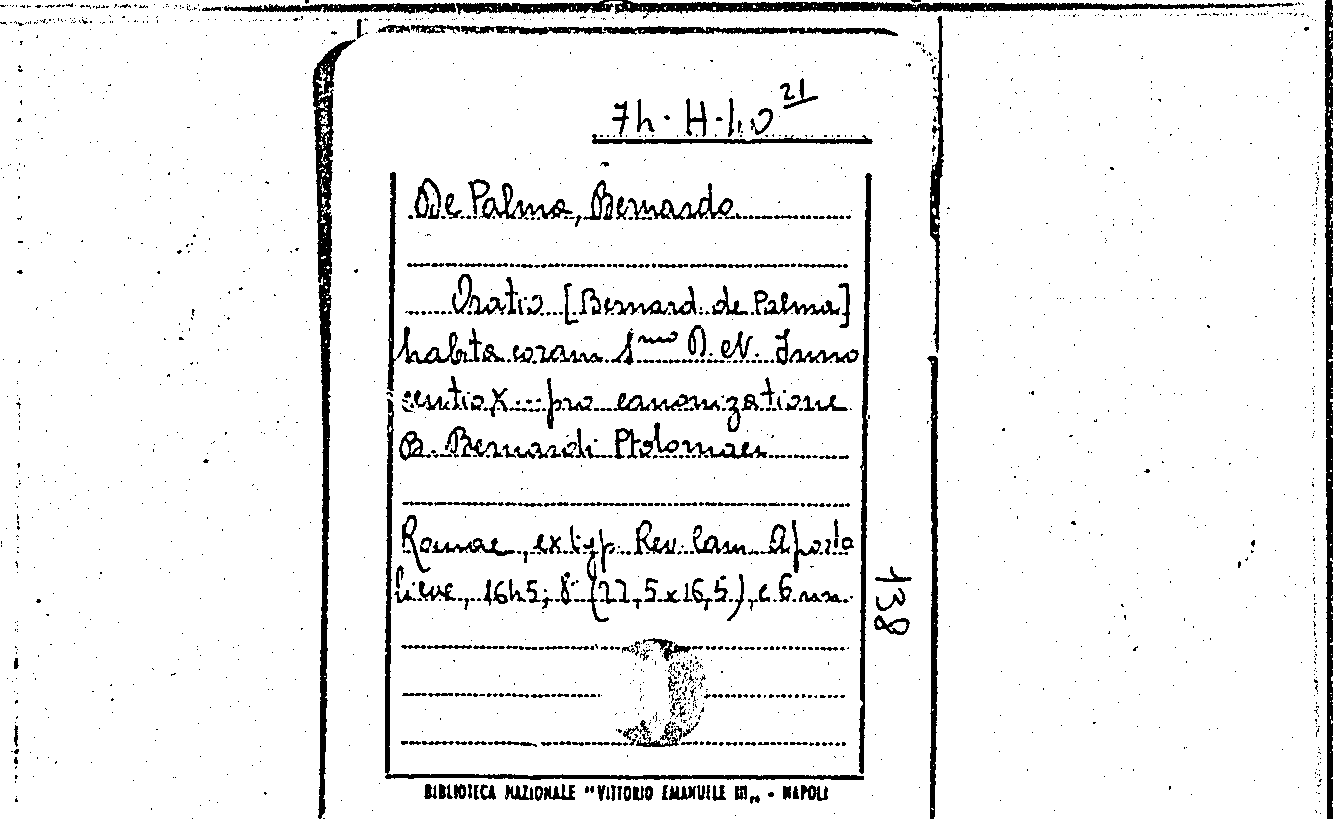 7h·H·40 21
De Palma, Bernardo
Oratio [Bernard. de Palma]
habita coram S.mo D. N. Inno
centio X... pro canonizatione
B. Bernardi Ptolomaei
Romae, ex typ. Rev. Cam. Aposto
licae, 1645; 8° (22,5x16,5), c 6 nn.
138
BIBLIOTECA NAZIONALE "VITTORIO EMANUELE III„ - NAPOLI